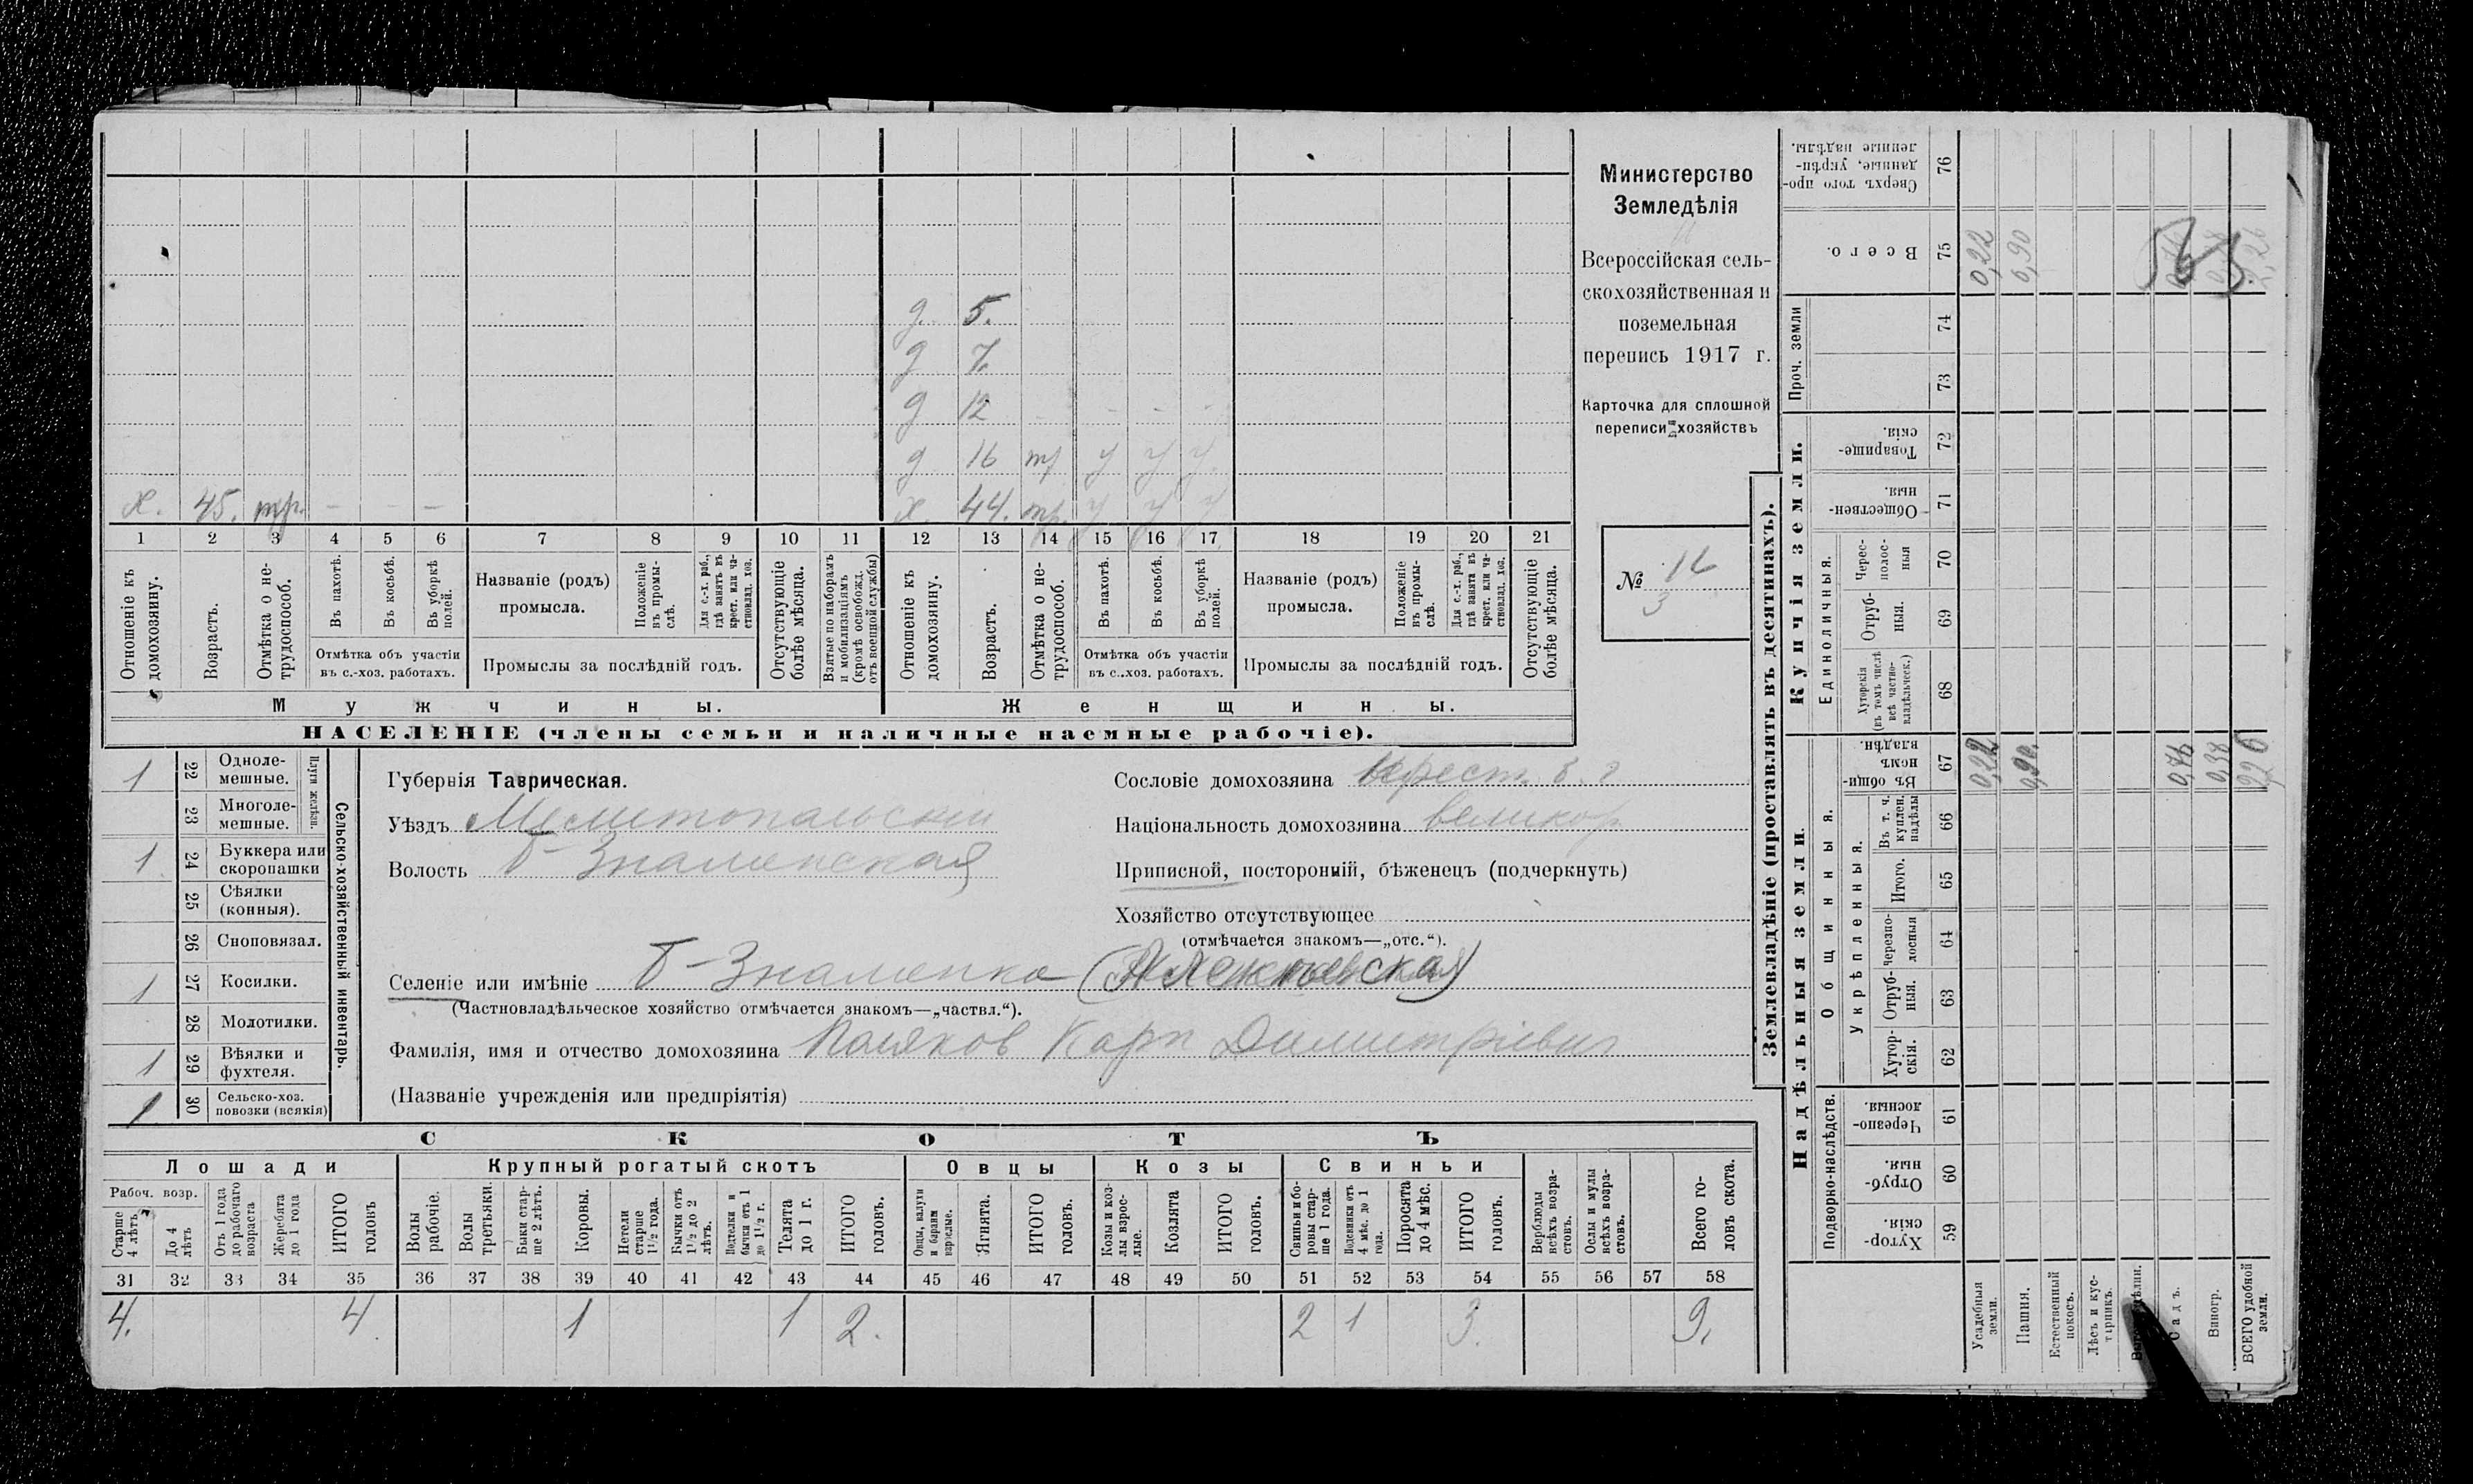 д. 5.
д 7.
д 12 - - - -
д 16 тр у у у
х. 45. тр. - - - х. 44. тр. у у у
1 2 3 4 5 6 7 8 9 10 11 12 13 14 15 16 17 18 19 20 21
Отношеніе къ домохозяину.
Возрастъ.
Отмѣтка о не-
трудоспособ.
Въ пахотѣ.
Въ косьбѣ.
Въ уборкѣ
полей.
Отмѣтка объ участіи
въ с.-хоз. работахъ.
Названіе (родъ)
промысла.
Положеніе
въ промы-
слѣ.
Для с.-х. раб.,
гдѣ занятъ въ
крест. или ча-
стновлад. хоз.
Промыслы за послѣдній годъ.
Отсутствующіе
болѣе мѣсяца.
Взятые по наборамъ
и мобилизаціямъ
(кромѣ освобожд.
отъ военной службы)
Отношеніе къ
домохозяину.
Возрастъ.
Отмѣтка о не-
трудоспособ.
Въ пахотѣ.
Въ косьбѣ.
Въ уборкѣ
полей.
Отмѣтка объ участіи
въ с.-хоз. работахъ.
Названіе (родъ)
промысла.
Положеніе
въ промы-
слѣ.
Для с.-х. раб.,
гдѣ занята въ
крест. или ча-
стновлад. хоз.
Промыслы за послѣдній годъ.
Отсутствующіе
болѣе мѣсяца.
Мужчины. Женщины.
НАСЕЛЕНІЕ (члены семьи и наличные наемные рабочіе).
Министерство
Земледѣлія
Всероссійская сель-
скохозяйственная и
поземельная
перепись 1917 г.
Карточка для сплошной
переписи хозяйствъ
№ 16
3
1 22 Одноле-
мешные.
23 Многоле-
мешные.
Плуги желѣзн.
1 24 Буккера или
скоропашки
25 Сѣялки
(конныя).
26 Сноповязал.
1 27 Косилки.
28 Молотилки.
1 29 Вѣялки и
фухтеля.
1 30 Сельско-хоз.
повозки (всякія)
Сельско-хозяйственный инвентарь.
Губернія Таврическая.
Уѣздъ Мелитопальскій
Волость Б-Знаменская
Селеніе или имѣніе Б-Знаменка (Алексѣевская)
(Частновладѣльческое хозяйство отмѣчается знакомъ—„частвл.“).
Фамилія, имя и отчество домохозяина Поляков Карп Димитріевич
(Названіе учрежденія или предпріятія)
Сословіе домохозяина Крест.
Національность домохозяина великор
Приписной, посторонній, бѣженецъ (подчеркнуть)
Хозяйство отсутствующее
(отмѣчается знакомъ—„отс.“).
СКОТЪ
Лошади Крупный рогатый скотъ Овцы Козы Свиньи
Рабоч. возр.
Старше
4 лѣтъ
До 4
лѣтъ
Отъ 1 года
до рабочаго
возраста
Жеребята
до 1 года
ИТОГО
головъ
Волы
рабочіе.
Волы
третьяки.
Быки стар-
ше 2 лѣтъ.
Коровы.
Нетели
старше
1½ года.
Бычки отъ
1½ до 2
лѣтъ.
Подтелки и
бычки отъ 1
до 1½ г.
Телята
до 1 г.
ИТОГО
головъ.
Овцы, валухи
и бараны
взрослые.
Ягнята.
ИТОГО
головъ.
Козы и коз-
лы взрос-
лые.
Козлята
ИТОГО
головъ.
Свиньи и бо-
ровы стар-
ше 1 года.
Подсвинки отъ
4 мѣс. до 1
года.
Поросята
до 4 мѣс.
ИТОГО
головъ.
Верблюды
всѣхъ возра-
стовъ.
Ослы и мулы
всѣхъ возра-
стовъ.
Всего го-
ловъ скота.
31 32 33 34 35 36 37 38 39 40 41 42 43 44 45 46 47 48 49 50 51 52 53 54 55 56 57 58
4. 4 1 1 2. 2 1 3. 9.
Землевладѣніе (проставлять въ десятинахъ).
Купчія земли.
Надѣльныя земли.
Проч. земли
Единоличныя.
Общинныя.
Укрѣпленныя.
Подворно-наслѣдств.
76 Сверхъ того про-
данные, укрѣп-
ленные надѣлы.
75 Всего.
74
73
72 Товарище-
скія.
71 Обществен-
ныя.
70 Черес-
полос-
ныя
69 Отруб-
ныя.
68 Хуторскія
(въ томъ числѣ
всѣ частно-
владѣльческ.)
67 Въ общин-
номъ
владѣн.
66 Въ т. ч.
куплен.
надѣлы
65 Итого.
64 Черезпо-
лосныя
63 Отруб-
ныя.
62 Хутор-
скія.
61 Черезпо-
лосныя.
60 Отруб-
ныя.
59 Хутор-
скія.
Усадебныя
земли.
Пашня.
Естественный
покосъ.
Лѣсъ и кус-
тарникъ.
Садъ.
Виногр.
ВСЕГО удобной
земли.
0,22 0,90 2,26
0,22 0,90. 0,76 0,38 2,26